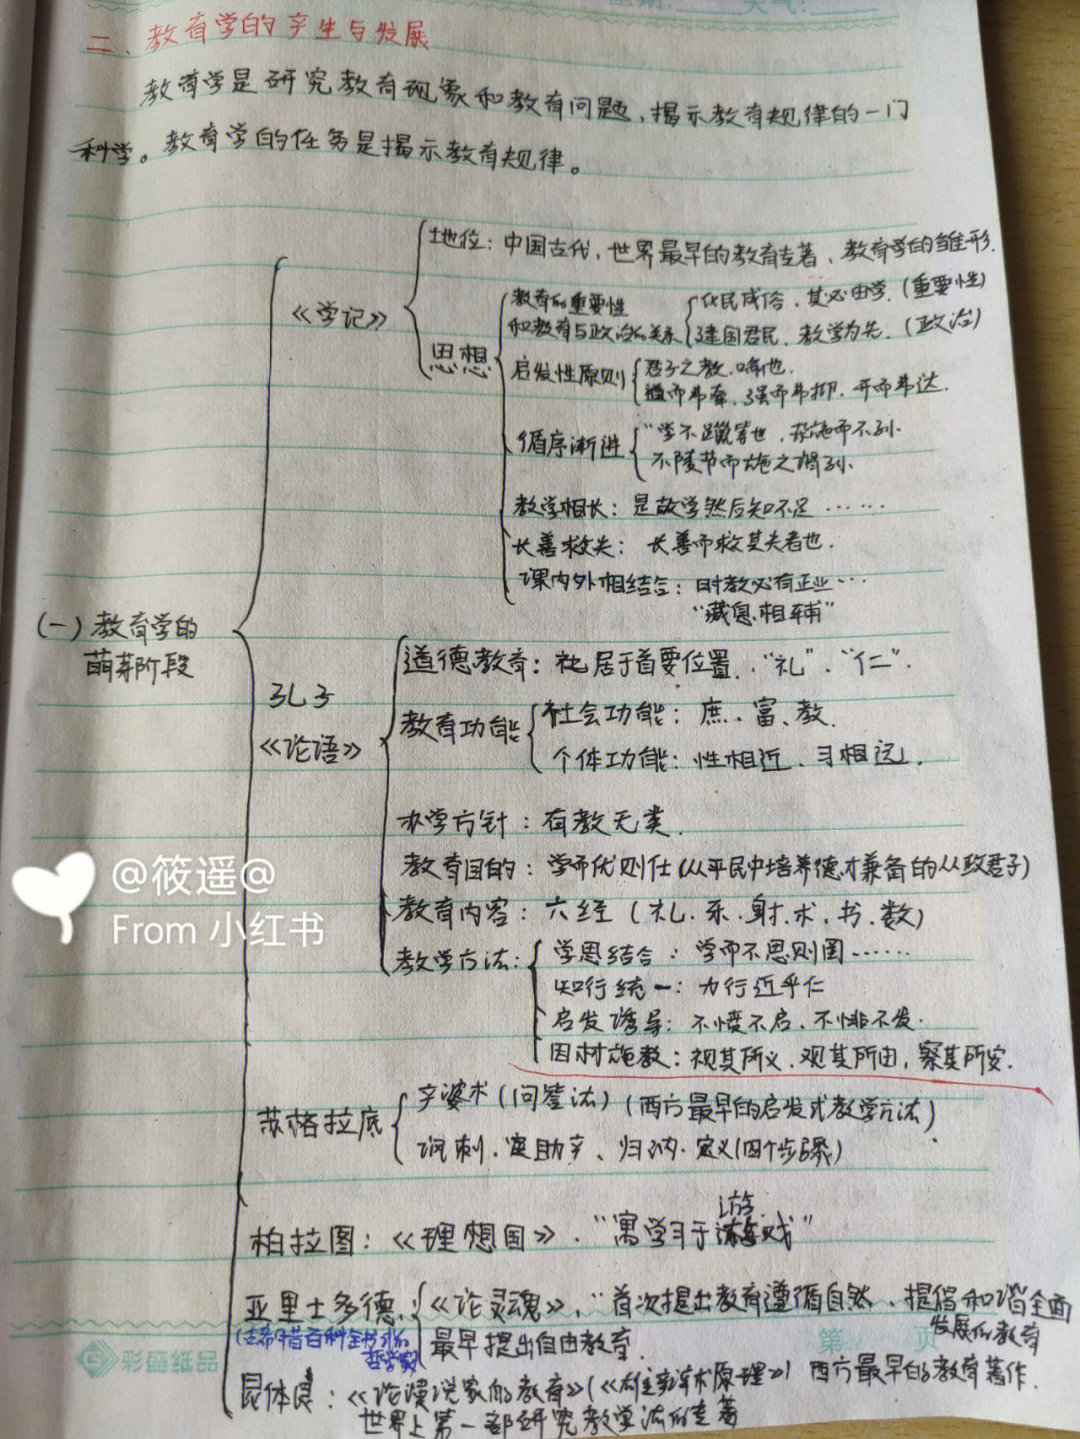 二、教育学的产生与发展
教育学是研究教育现象和教育问题,揭示教育规律的一门
科学。教育学的任务是揭示教育规律。
地位:中国古代,世界最早的教育专著、教育学的雏形.
《学记》
思想
教育的重要性
和教育与政治的关系
化民成俗、其必由学.(重要性)
建国君民、教学为先.(政治)
启发性原则
君子之教.喻也.
道而弗牵、强而弗抑.开而弗达.
循序渐进
"学不躐等也、杂施而不孙.
不陵节而施之谓孙.
教学相长:是故学然后知不足……
长善救失:长善而救其失者也.
课内外相结合:时教必有正业…
"藏息相辅"
(一)教育学的
萌芽阶段
孔子
《论语》
道德教育:居于首要位置."礼"."仁".
教育功能
社会功能:庶、富、教.
个体功能:性相近、习相远.
办学方针:有教无类.
教育目的:学而优则仕(从平民中培养德才兼备的从政君子)
教育内容:六经(礼.乐.射.术.书.数)
教学方法:
学思结合:学而不思则罔……
知行统一:力行近乎仁
启发诱导:不愤不启、不悱不发.
因材施教:视其所义、观其所由,察其所安.
苏格拉底
产婆术(问答法)(西方最早的启发式教学方法)
讽刺.定助产、归纳.定义(四个步骤)
柏拉图:《理想国》."寓学习于游戏"
亚里士多德.
(古希腊百科全书式的
哲学家)
《论灵魂》,"首次提出教育遵循自然、提倡和谐全面
发展的教育
最早提出自由教育.
昆体良:《论演说家的教育》(《雄辩术原理》)西方最早的教育著作.
世界上第一部研究教学法的专著
@筱遥@
From 小红书
彩盛纸品
第 页